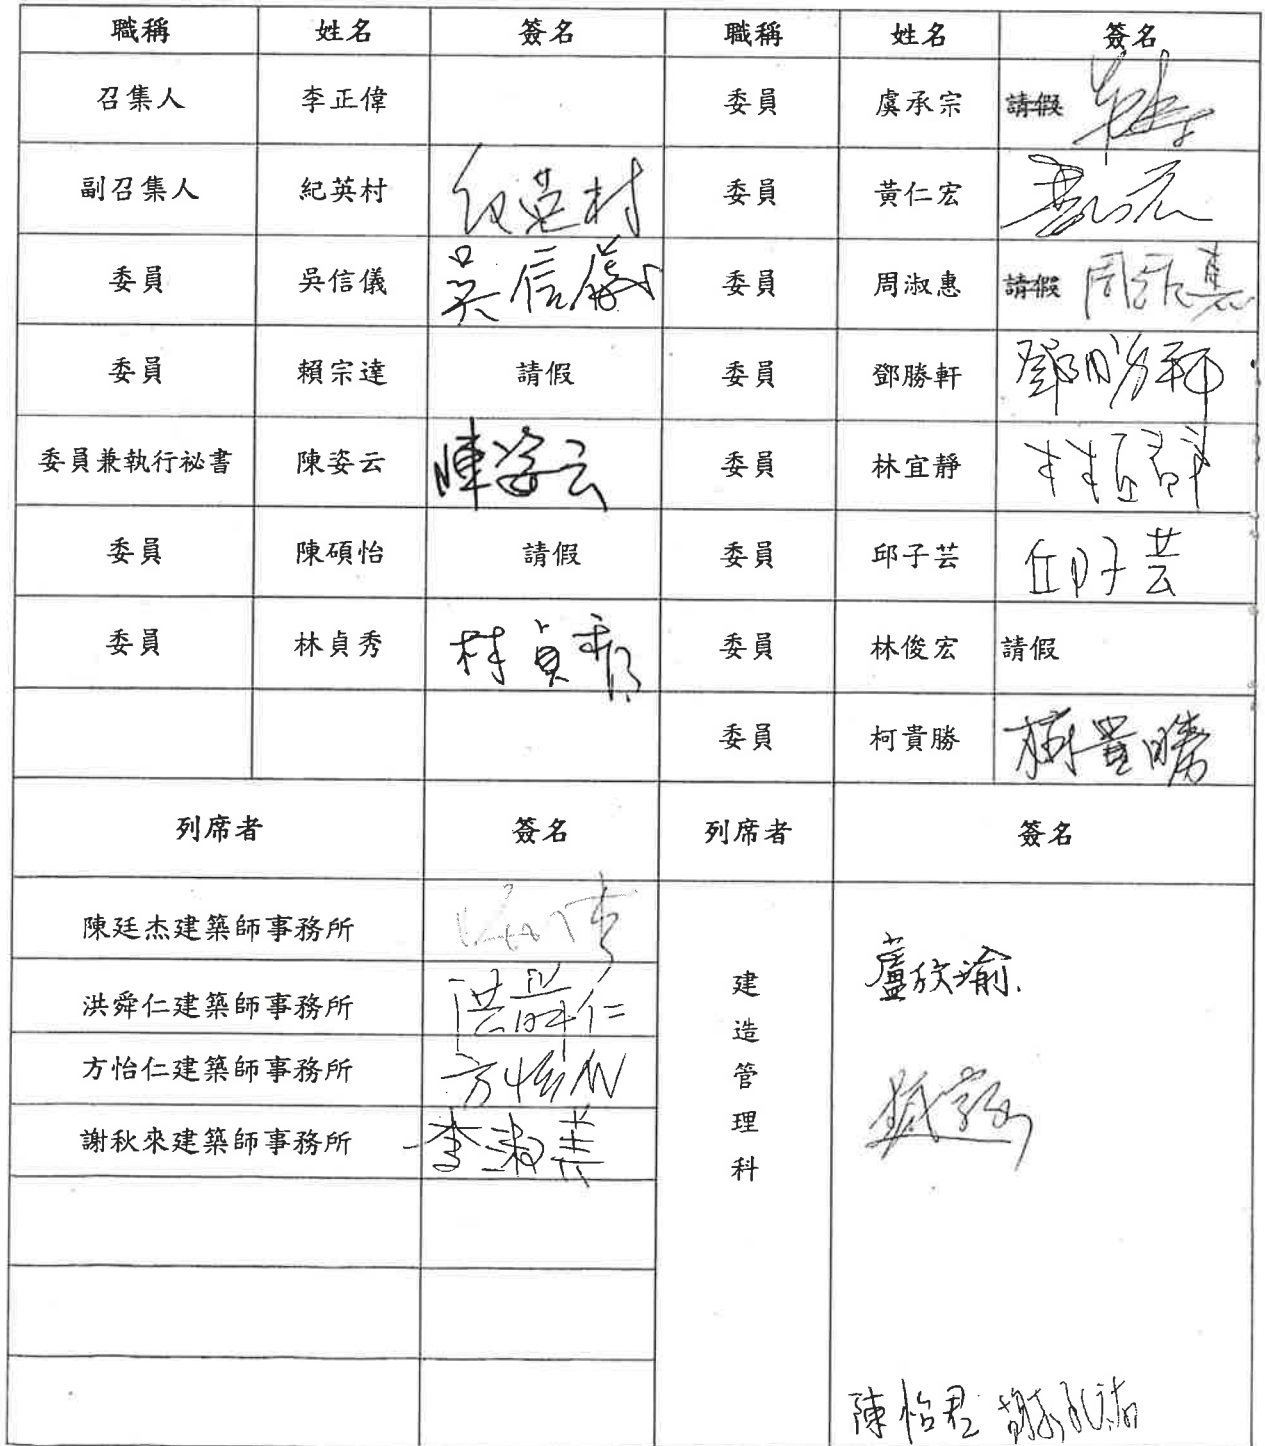 職稱 姓名 簽名 職稱 姓名 簽名
召集人 李正偉 委員 虞承宗 請假
副召集人 紀英村 紀英村 委員 黃仁宏
委員 吳信儀 吳信儀 委員 周淑惠 請假 周淑惠
委員 賴宗達 請假 委員 鄧勝軒 鄧勝軒
委員兼執行祕書 陳姿云 陳姿云 委員 林宜靜 林宜靜
委員 陳碩怡 請假 委員 邱子芸 邱子芸
委員 林貞秀 林貞秀 委員 林俊宏 請假
委員 柯貴勝 柯貴勝
列席者 簽名 列席者 簽名
陳廷杰建築師事務所
洪舜仁建築師事務所 洪舜仁
方怡仁建築師事務所 方怡仁
謝秋來建築師事務所 李淑美
建造管理科
盧欣瑜
陳怡君